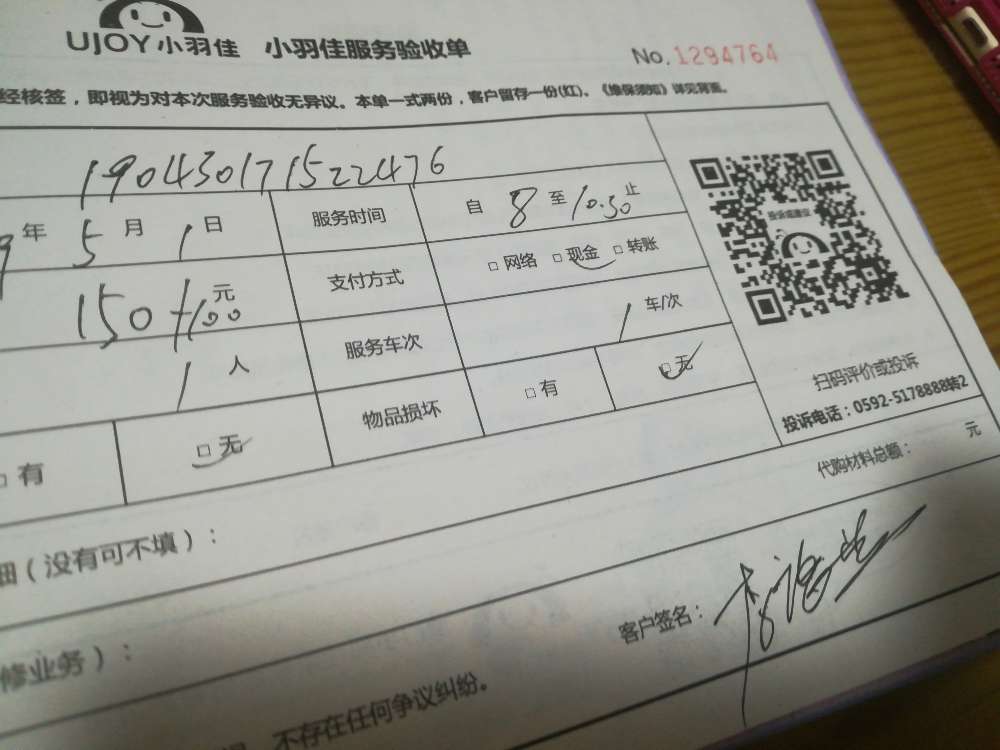 UJOY小羽佳 小羽佳服务验收单
No. 1294764
经核签，即视为对本次服务验收无异议。本单一式两份，客户留存一份(红)。《维保须知》详见背面。
190430171522476
9年 5月 1日 服务时间 自 8 至 10.30 止
150+100 元 支付方式 □ 网络 □ 现金 □ 转账
1 人 服务车次 1 车/次
□ 有 □ 无 物品损坏 □ 有 □ 无
投诉或建议
扫码评价或投诉
投诉电话：0592-5178888转2
细（没有可不填）： 代购材料总额： 元
修业务）： 客户签名：
不存在任何争议纠纷。